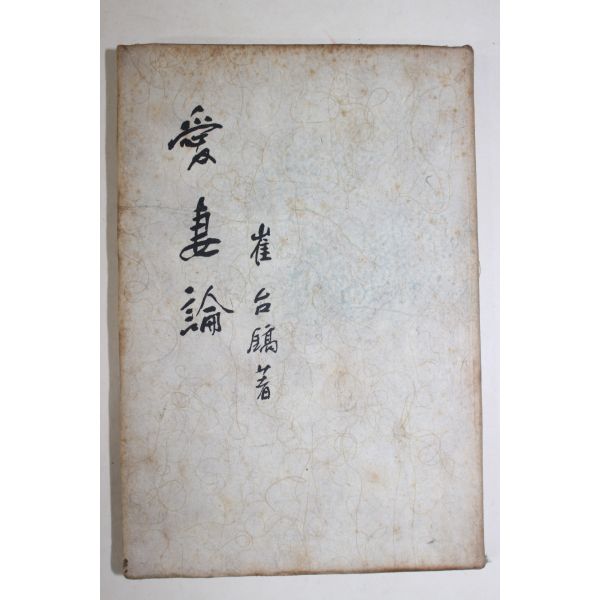 愛妻論
崔台鎬著